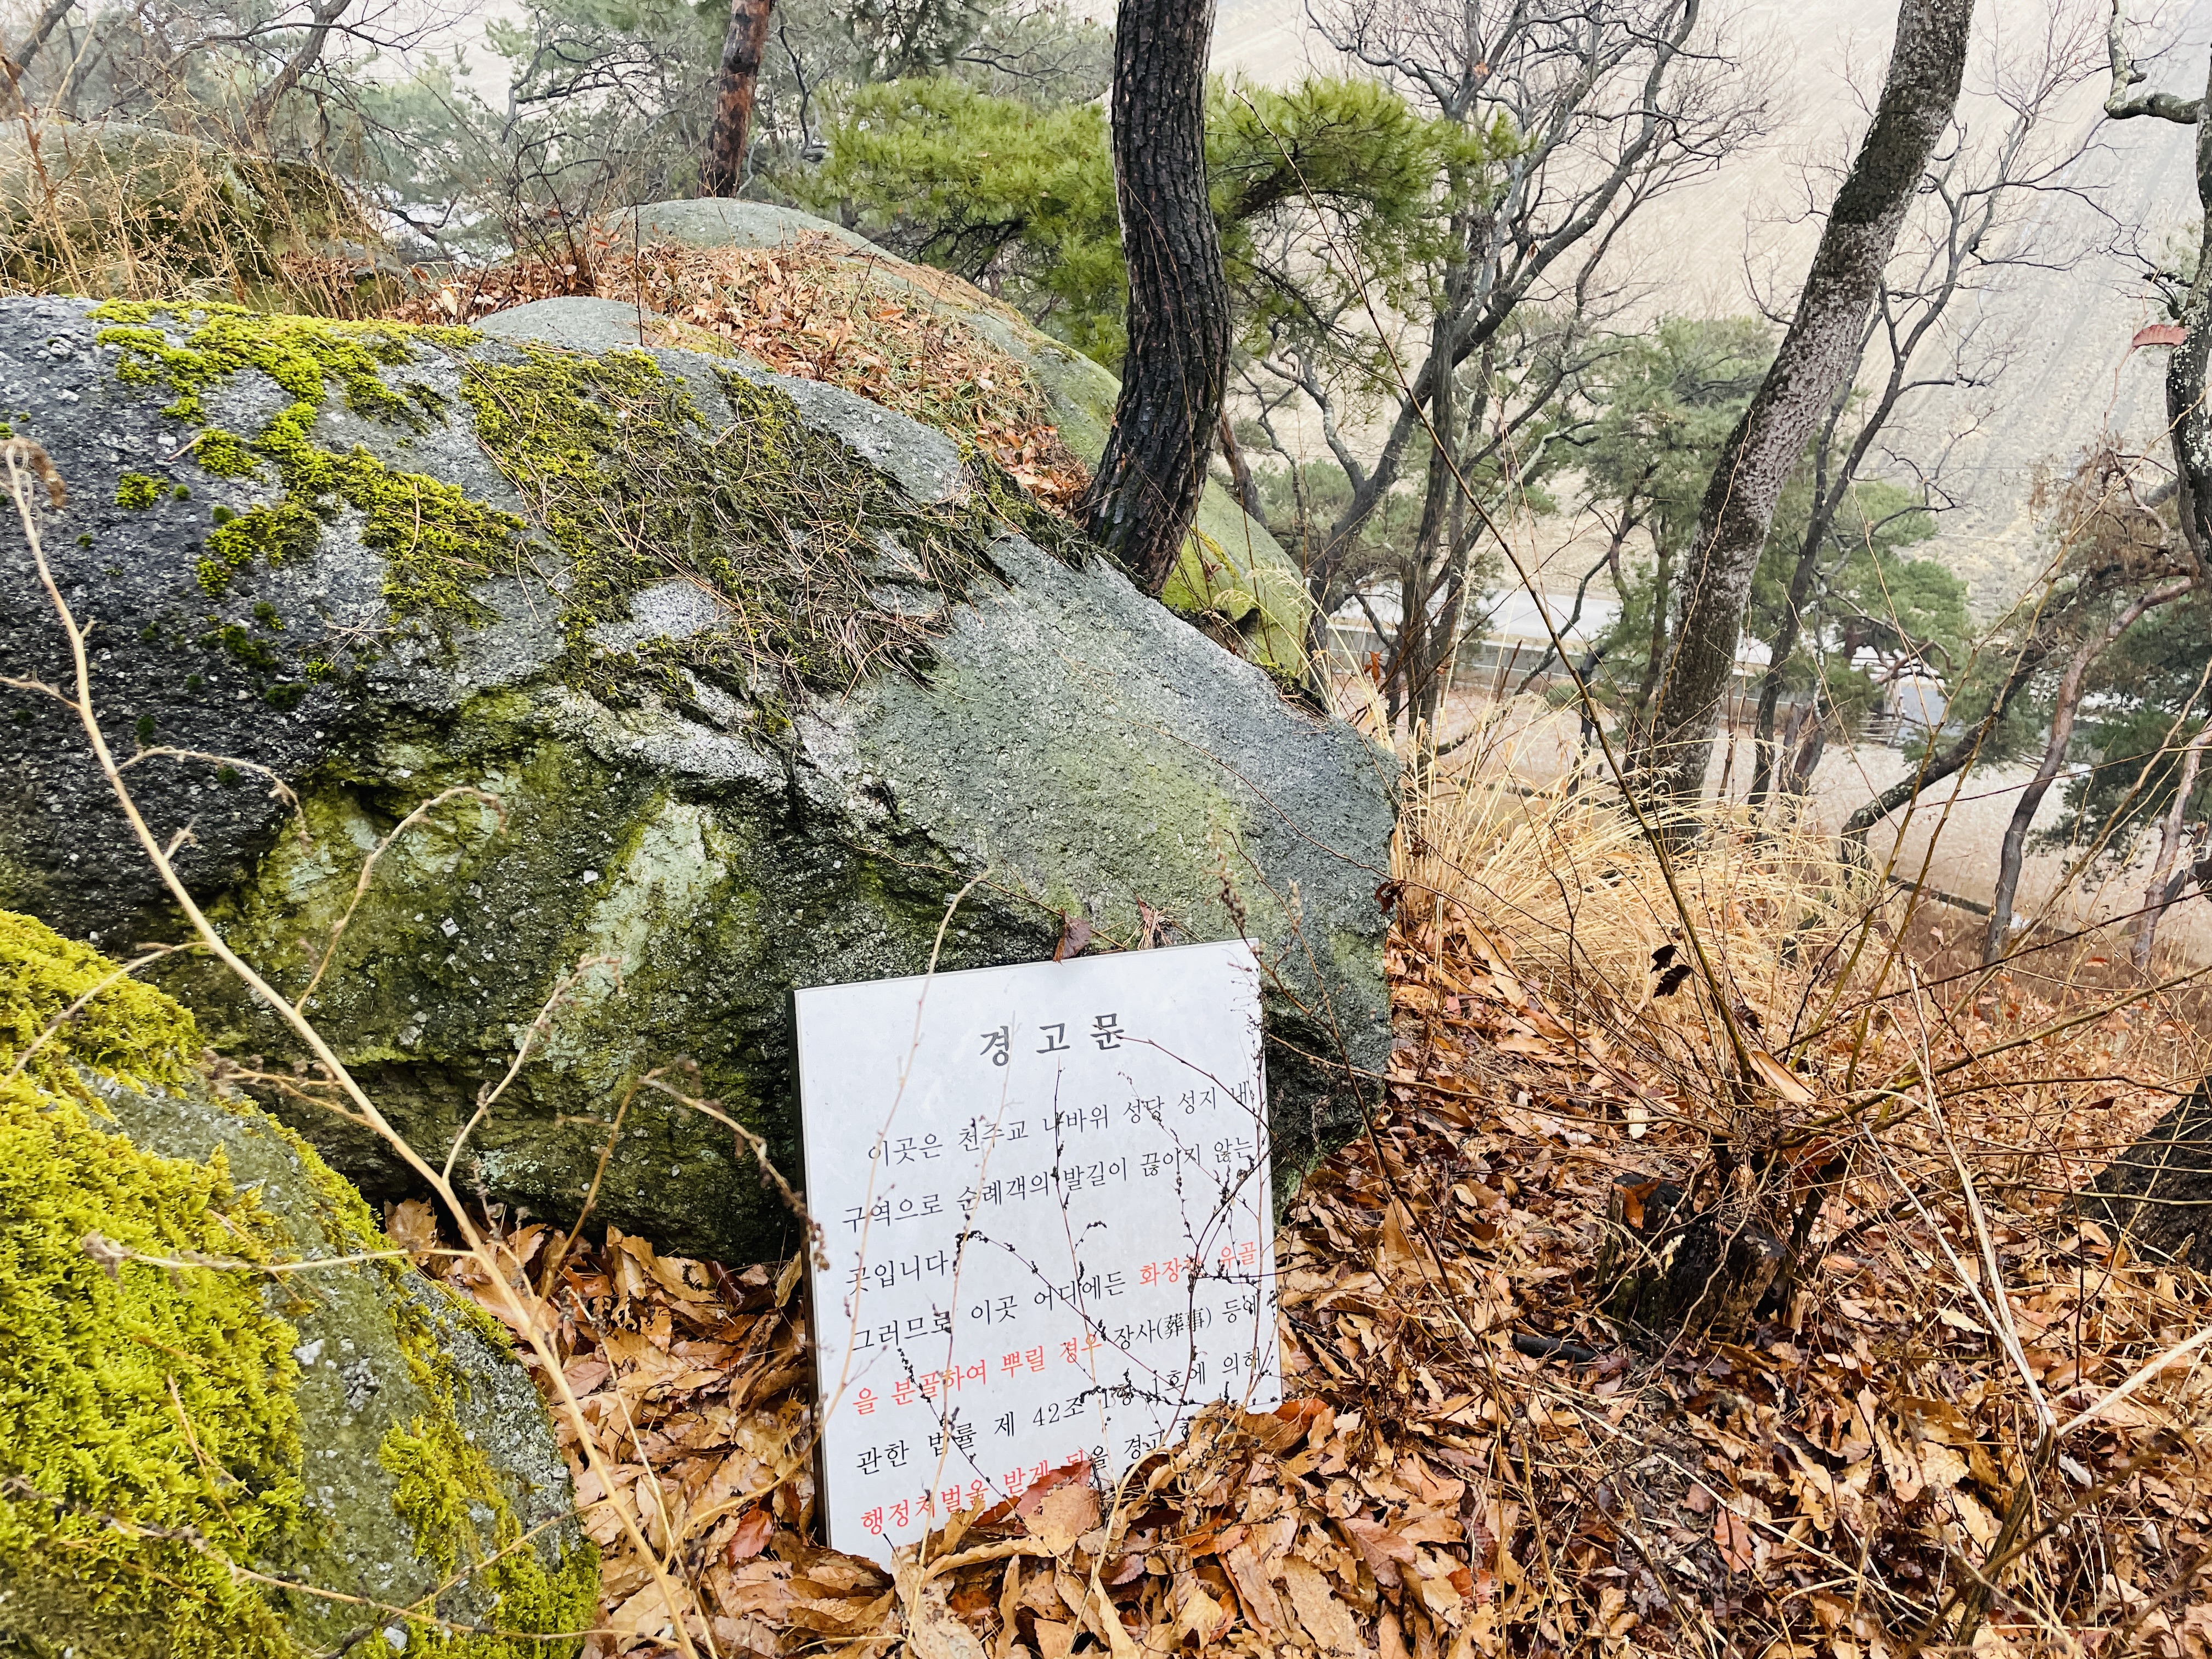 경 고 문
이곳은 천주교 나바위 성당 성지 내
구역으로 순례객의 발길이 끊이지 않는
곳입니다.
그러므로 이곳 어디에든 화장한 유골
을 분골하여 뿌릴 경우 장사(葬事) 등에
관한 법률 제 42조 1항 호에 의해
행정처벌을 받게 됨을 경고